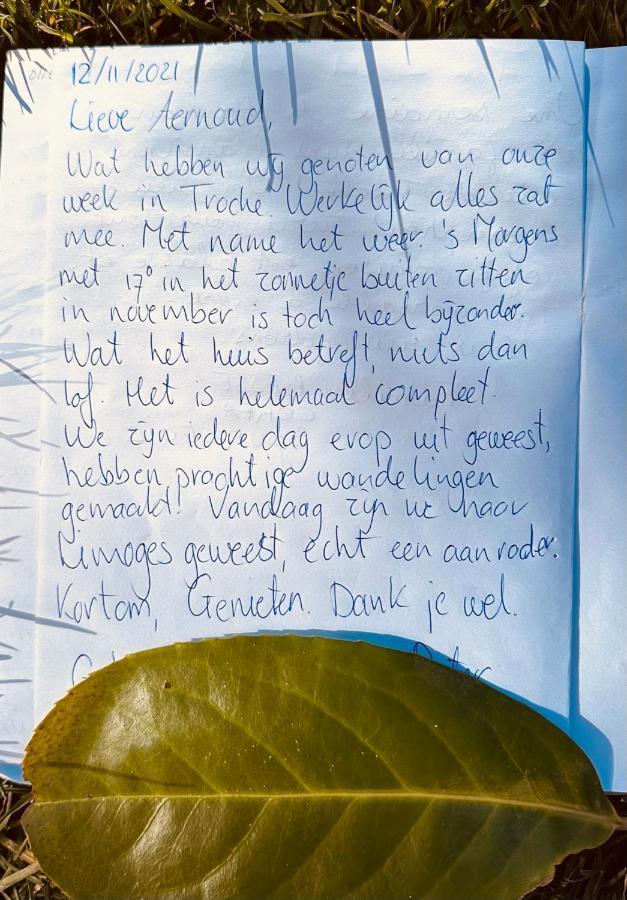 12/11/2021
Lieve Aernoud,
Wat hebben wij genoten van onze
week in Troche. Werkelijk alles zat
mee. Met name het weer. 's Morgens
met 17° in het zonnetje buiten zitten
in november is toch heel bijzonder.
Wat het huis betreft, niets dan
lof. Het is helemaal compleet.
We zijn iedere dag erop uit geweest,
hebben prachtige wandelingen
gemaakt! Vandaag zijn we naar
Limoges geweest, echt een aanrader.
Kortom, Genieten. Dank je wel.